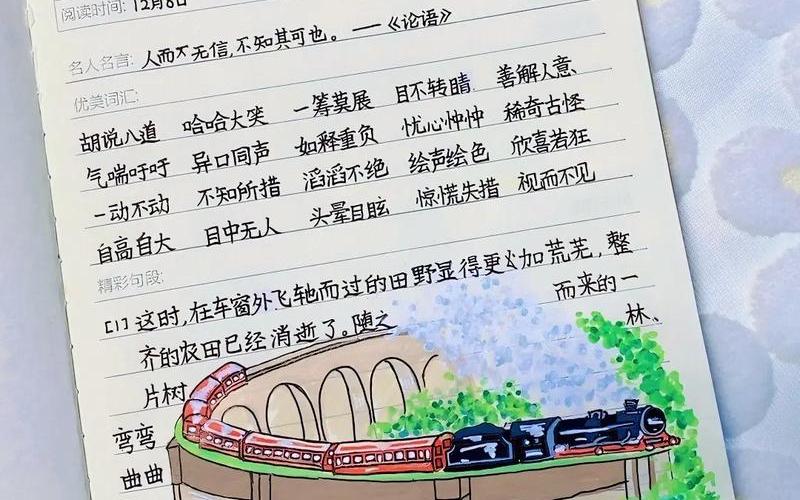 阅读时间: 12月8日
名人名言: 人而不无信,不知其可也。——《论语》
优美词汇:
胡说八道 哈哈大笑 一筹莫展 目不转睛 善解人意
气喘吁吁 异口同声 如释重负 忧心忡忡 稀奇古怪
一动不动 不知所措 滔滔不绝 绘声绘色 欣喜若狂
自高自大 目中无人 头晕目眩 惊慌失措 视而不见
精彩句段:
[1] 这时,在车窗外飞驰而过的田野显得更加荒芜,整
齐的农田已经消逝了。随之 而来的一
片树 林、
弯弯
曲曲